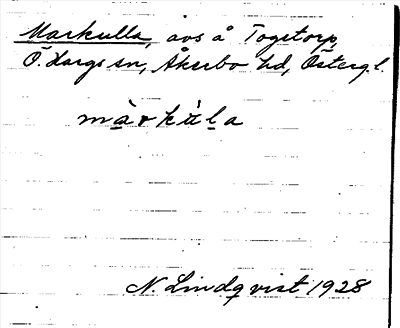 Markulla, avs å Togstorp,
Ö. Hargs sn, Åkerbo hd, Östergl.
màrkùla
N. Lindqvist 1928